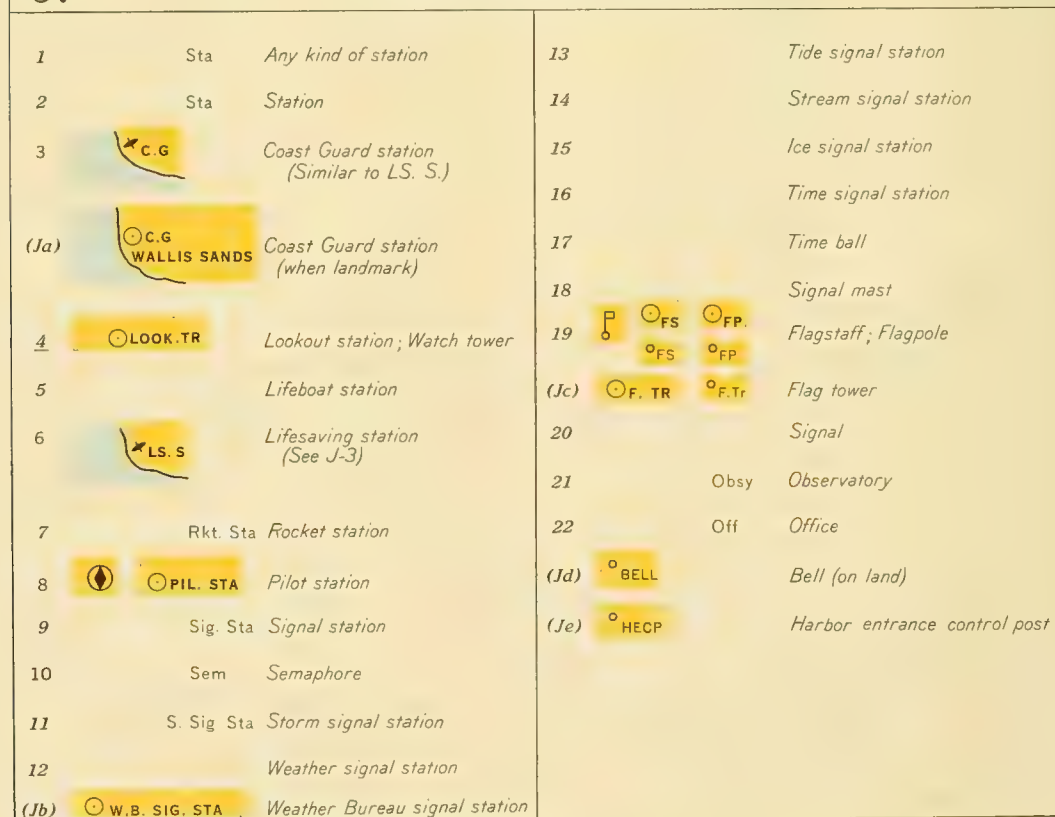 1 Sta Any kind of station
2 Sta Station
3 C.G Coast Guard station
(Similar to LS. S.)
(Ja) C.G
WALLIS SANDS Coast Guard station
(when landmark)
4 LOOK.TR Lookout station; Watch tower
5 Lifeboat station
6 LS. S Lifesaving station
(See J-3)
7 Rkt. Sta Rocket station
8 PIL. STA Pilot station
9 Sig. Sta Signal station
10 Sem Semaphore
11 S. Sig Sta Storm signal station
12 Weather signal station
(Jb) W.B. SIG. STA Weather Bureau signal station
13 Tide signal station
14 Stream signal station
15 Ice signal station
16 Time signal station
17 Time ball
18 Signal mast
19 FS FP. Flagstaff; Flagpole
FS FP
(Jc) F. TR F.Tr Flag tower
20 Signal
21 Obsy Observatory
22 Off Office
(Jd) BELL Bell (on land)
(Je) HECP Harbor entrance control post